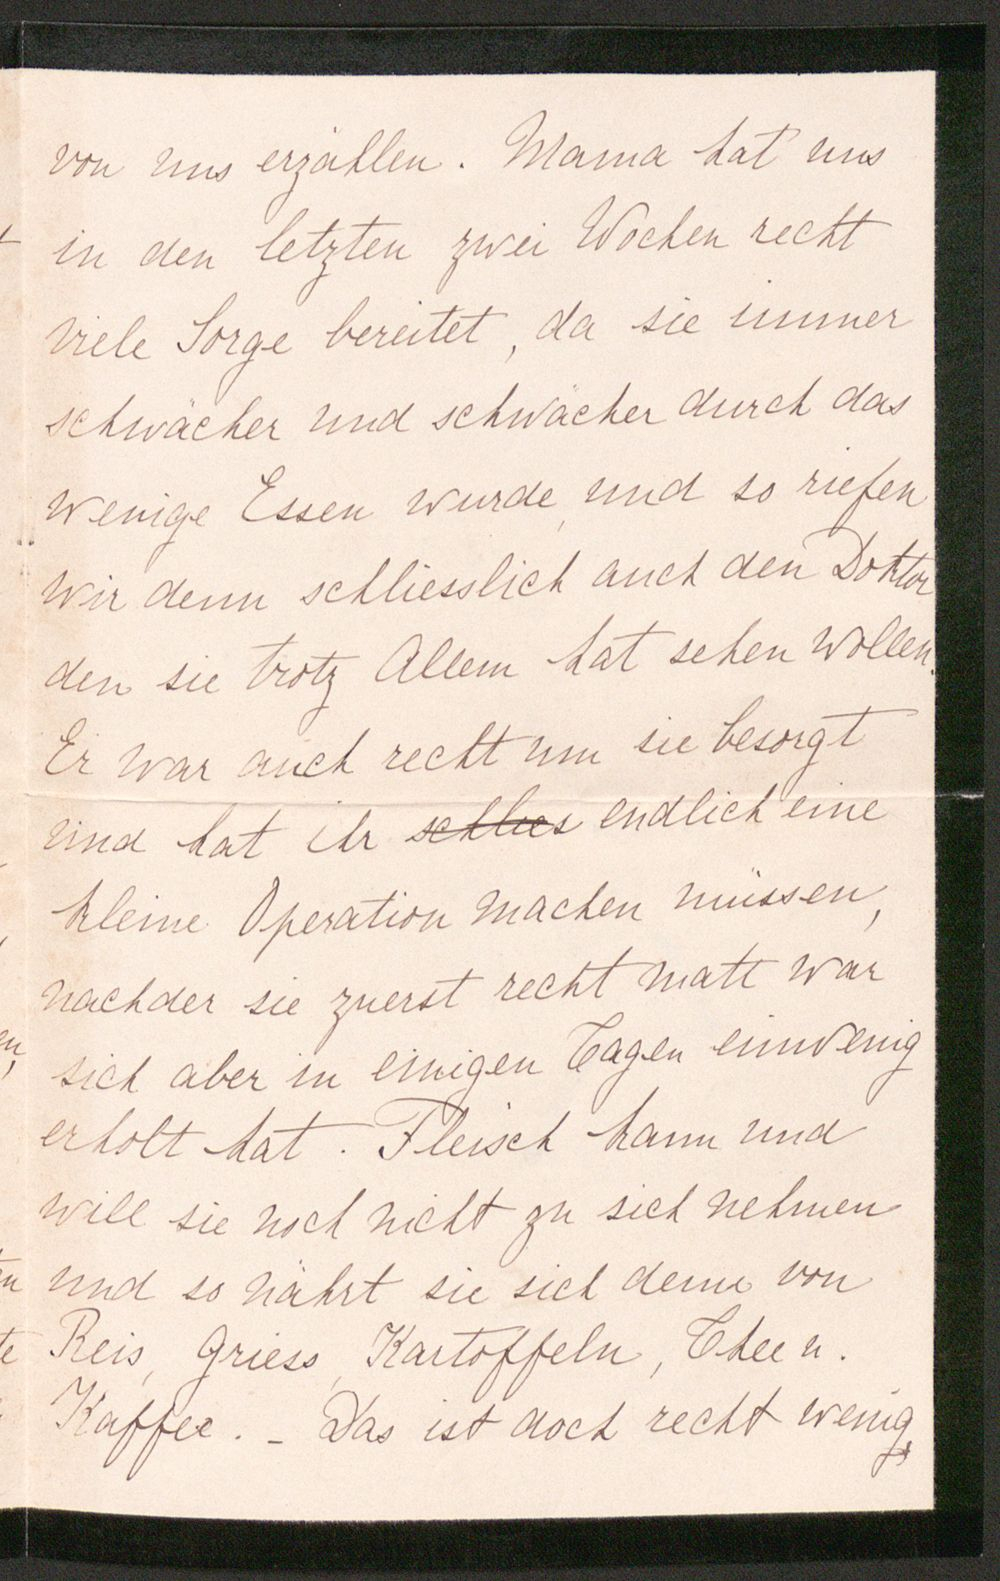 von uns erzählen. Mama hat uns
in den letzten zwei Wochen recht
viele Sorge bereitet, da sie immer
schwächer und schwächer durch das
wenige Essen wurde, und so riefen
wir denn schliesslich auch den Doktor
den sie trotz Allem hat sehen wollen.
Er war auch recht um sie besorgt
und hat ihr schlies endlich eine
kleine Operation machen müssen,
nachder sie zuerst recht matt war
sich aber in einigen Tagen einwenig
erholt hat. Fleisch kann und
will sie noch nicht zu sich nehmen
und so nährt sie sich denn von
Reis, Griess, Kartoffeln, Thee u.
Kaffee. - Das ist doch recht wenig,